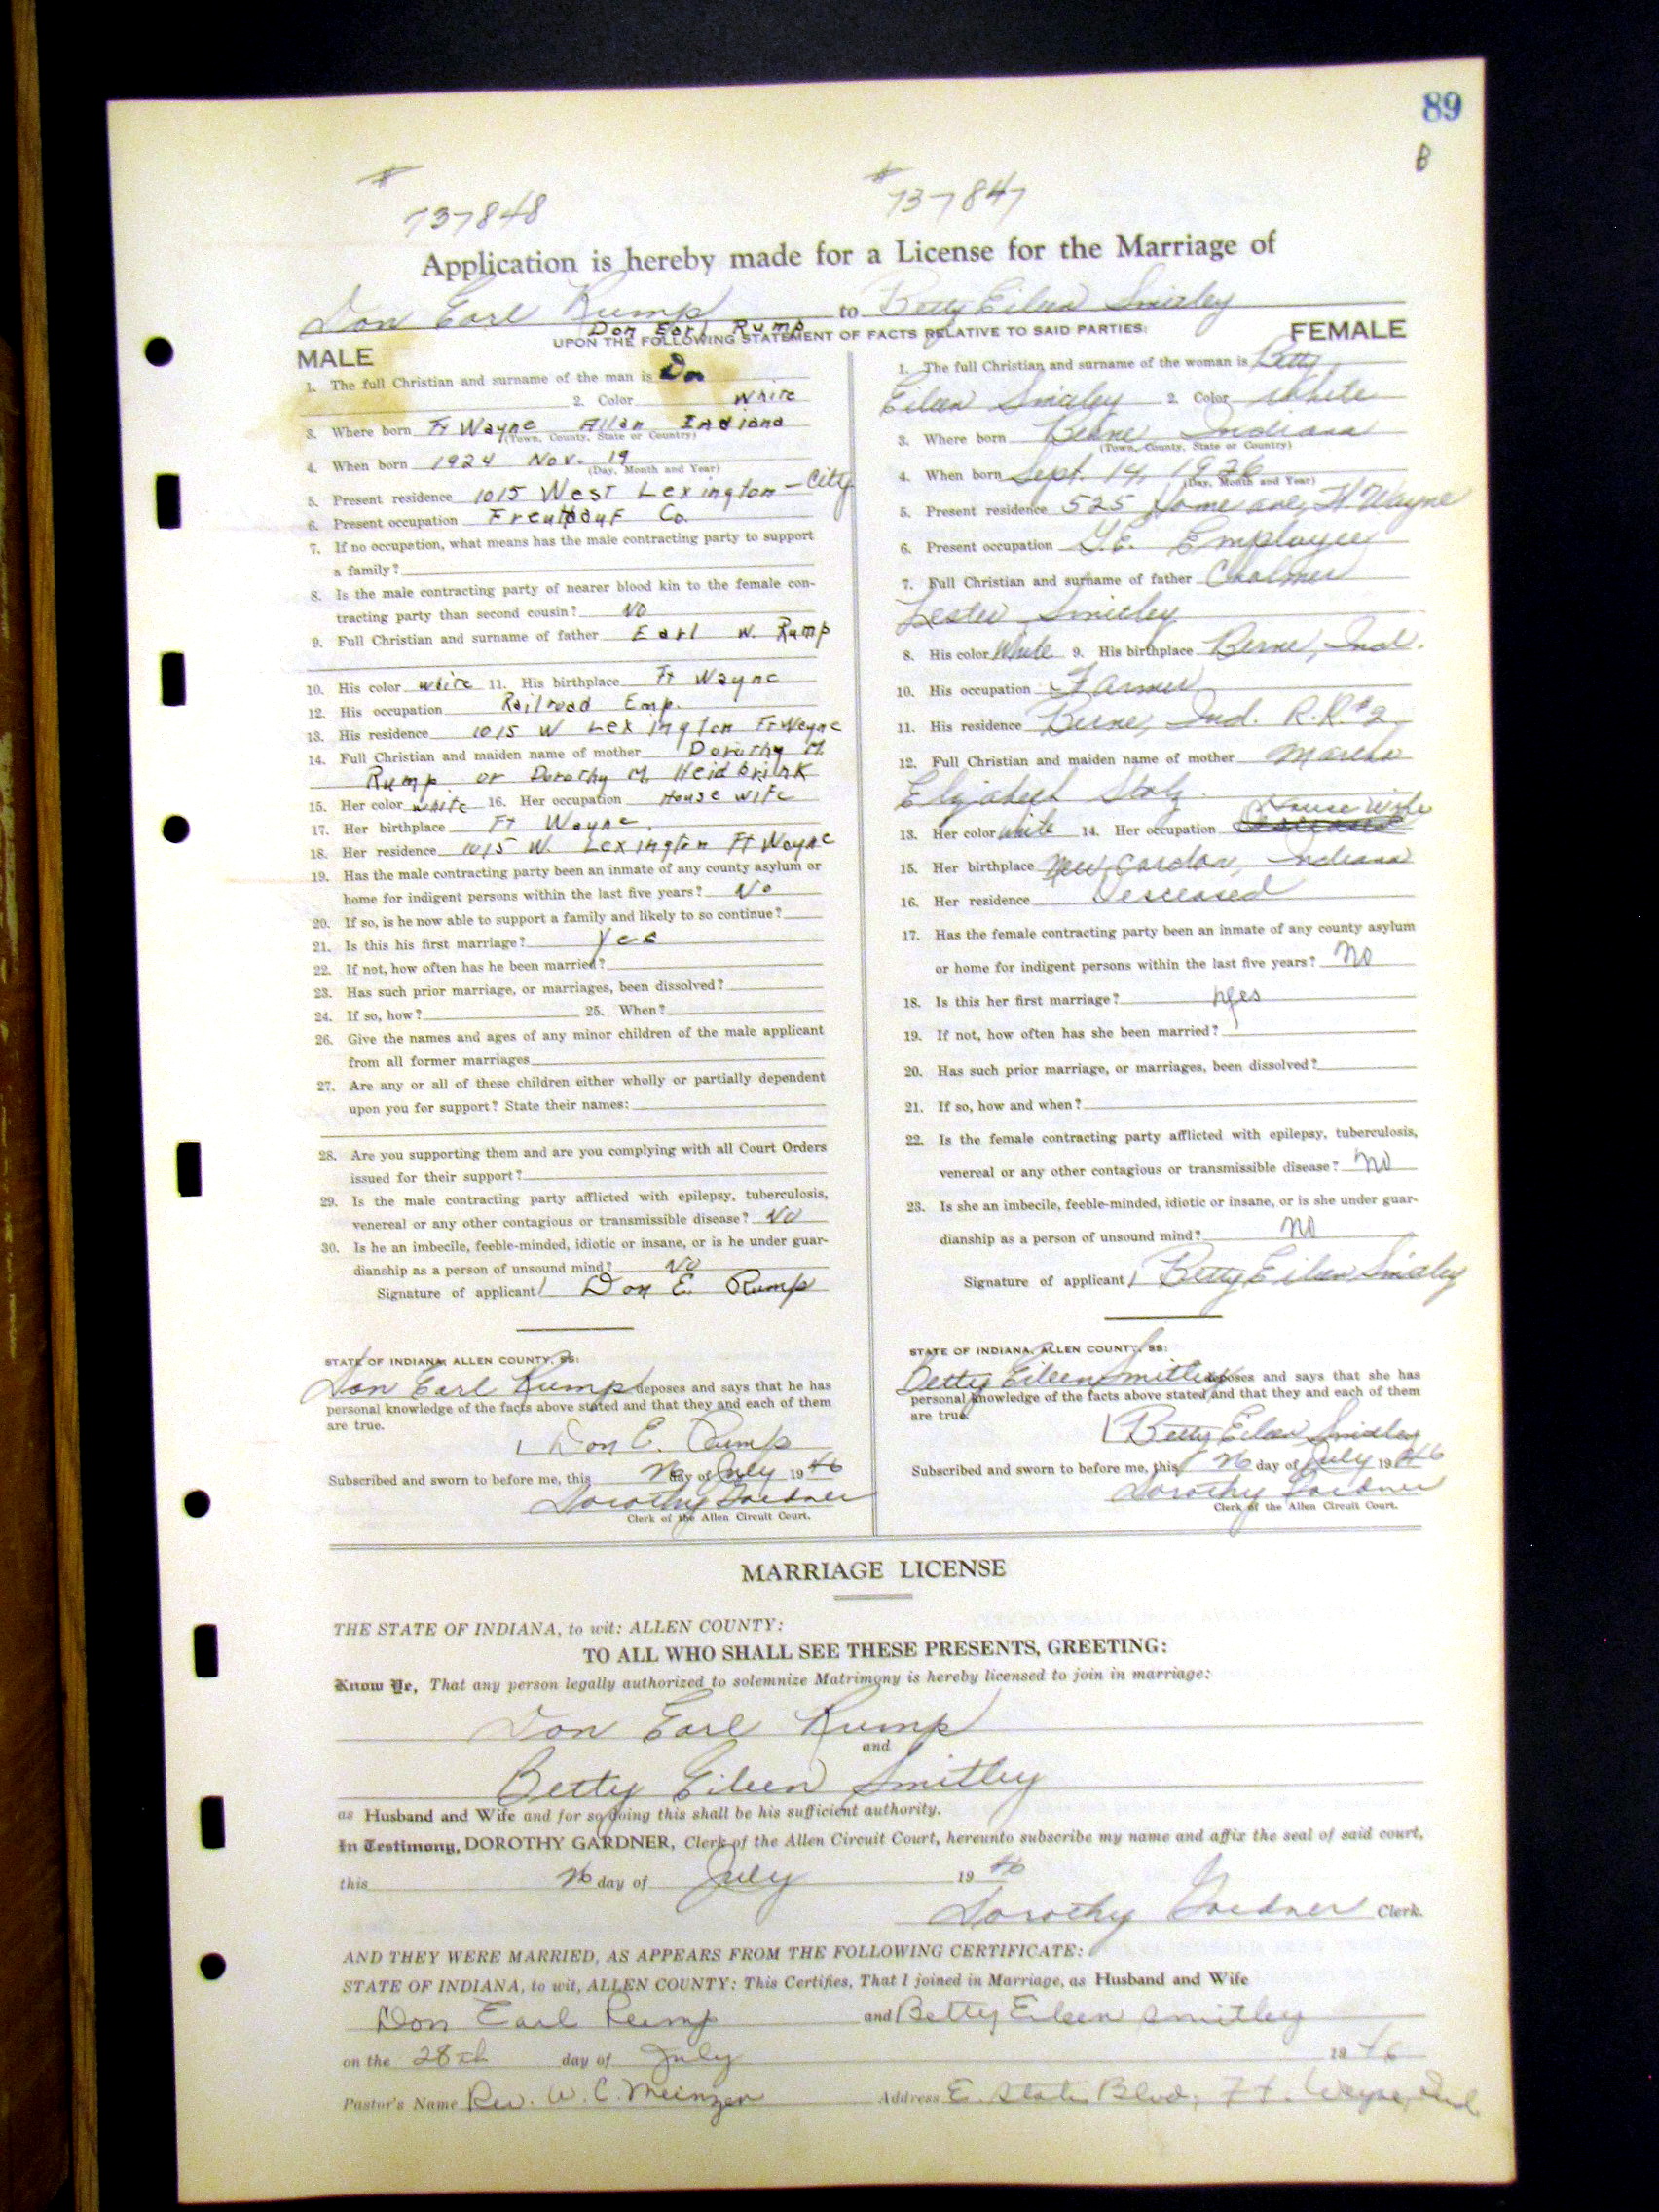 89
B
# #
737848 737847
Application is hereby made for a License for the Marriage of
Don Earl Rump to Betty Eileen Smitley
Don Earl Rump
UPON THE FOLLOWING STATEMENT OF FACTS RELATIVE TO SAID PARTIES:
MALE
1. The full Christian and surname of the man is Don
2. Color white
3. Where born Ft Wayne Allen Indiana
(Town, County, State or Country)
4. When born 1924 Nov. 19
(Day, Month and Year)
5. Present residence 1015 West Lexington - City
6. Present occupation Co.
7. If no occupation, what means has the male contracting party to support
a family?
8. Is the male contracting party of nearer blood kin to the female con-
tracting party than second cousin? No
9. Full Christian and surname of father Earl W. Rump
10. His color white 11. His birthplace Ft Wayne
12. His occupation Railroad Emp.
13. His residence 1015 W Lexington Ft Wayne
14. Full Christian and maiden name of mother Dorothy M.
Rump or Dorothy M. Heidbrink
15. Her color white 16. Her occupation House wife
17. Her birthplace Ft Wayne.
18. Her residence 1015 W. Lexington Ft Wayne
19. Has the male contracting party been an inmate of any county asylum or
home for indigent persons within the last five years? No
20. If so, is he now able to support a family and likely to so continue?
21. Is this his first marriage? Yes
22. If not, how often has he been married?
23. Has such prior marriage, or marriages, been dissolved?
24. If so, how? 25. When?
26. Give the names and ages of any minor children of the male applicant
from all former marriages
27. Are any or all of these children either wholly or partially dependent
upon you for support? State their names:
28. Are you supporting them and are you complying with all Court Orders
issued for their support?
29. Is the male contracting party afflicted with epilepsy, tuberculosis,
venereal or any other contagious or transmissible disease? No
30. Is he an imbecile, feeble-minded, idiotic or insane, or is he under guar-
dianship as a person of unsound mind? No
Signature of applicant Don E. Rump
STATE OF INDIANA, ALLEN COUNTY, SS:
Don Earl Rump deposes and says that he has
personal knowledge of the facts above stated and that they and each of them
are true.
Don E. Rump
Subscribed and sworn to before me, this 26 day of July 1946
Dorothy Gardner
Clerk of the Allen Circuit Court.
FEMALE
1. The full Christian and surname of the woman is Betty
Eileen Smitley 2. Color White
3. Where born Berne, Indiana
(Town, County, State or Country)
4. When born Sept. 14, 1926
(Day, Month and Year)
5. Present residence 525 Home ave, Ft Wayne
6. Present occupation G.E. Employee
7. Full Christian and surname of father Chalmer
Lester Smitley
8. His color White 9. His birthplace Berne, Ind.
10. His occupation Farmer
11. His residence Berne, Ind. R.R.#2
12. Full Christian and maiden name of mother
Elizabeth Stolz
13. Her color white 14. Her occupation House wife
15. Her birthplace New Indiana
16. Her residence Desceased
17. Has the female contracting party been an inmate of any county asylum
or home for indigent persons within the last five years? No
18. Is this her first marriage? yes
19. If not, how often has she been married?
20. Has such prior marriage, or marriages, been dissolved?
21. If so, how and when?
22. Is the female contracting party afflicted with epilepsy, tuberculosis,
venereal or any other contagious or transmissible disease? No
23. Is she an imbecile, feeble-minded, idiotic or insane, or is she under guar-
dianship as a person of unsound mind? No
Signature of applicant Betty Eileen Smitley
STATE OF INDIANA, ALLEN COUNTY, SS:
Betty Eileen Smitley deposes and says that she has
personal knowledge of the facts above stated and that they and each of them
are true.
Betty Eileen Smitley
Subscribed and sworn to before me, this 26 day of July 1946
Dorothy Gardner
Clerk of the Allen Circuit Court.
MARRIAGE LICENSE
THE STATE OF INDIANA, to wit: ALLEN COUNTY:
TO ALL WHO SHALL SEE THESE PRESENTS, GREETING:
Know Ye, That any person legally authorized to solemnize Matrimony is hereby licensed to join in marriage:
Don Earl Rump
and
Betty Eileen Smitley
as Husband and Wife and for so doing this shall be his sufficient authority.
In Testimony, DOROTHY GARDNER, Clerk of the Allen Circuit Court, hereunto subscribe my name and affix the seal of said court,
this 26 day of July 1946
Dorothy Gardner Clerk.
AND THEY WERE MARRIED, AS APPEARS FROM THE FOLLOWING CERTIFICATE:
STATE OF INDIANA, to wit, ALLEN COUNTY: This Certifies, That I joined in Marriage, as Husband and Wife
Don Earl Rump and Betty Eileen Smitley
on the 28th day of July 1946
Pastor's Name Rev. W. C. Meinzen Address E. State Blvd, Ft. Wayne, Ind